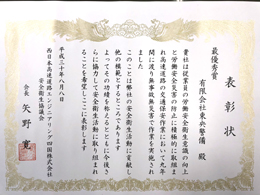 表彰状
最優秀賞
有限会社東央警備 殿
貴社は従業員の労働安全衛生意識の向上
と労働安全災害の防止に積極的に取り組ま
れ高速道路の交通保安作業において九年
間に渡り無事故無災害で作業を実施され
ました
このことは弊社の安全衛生活動に貢献し
他の模範とするところであります
よってその功績を称えるとともに今後さ
らに協力して安全衛生活動に取り組まれ
ることを希望しここに表彰します
平成三十年八月八日
西日本高速道路エンジニアリング四国株式会社
安全衛生協議会
会長 矢野